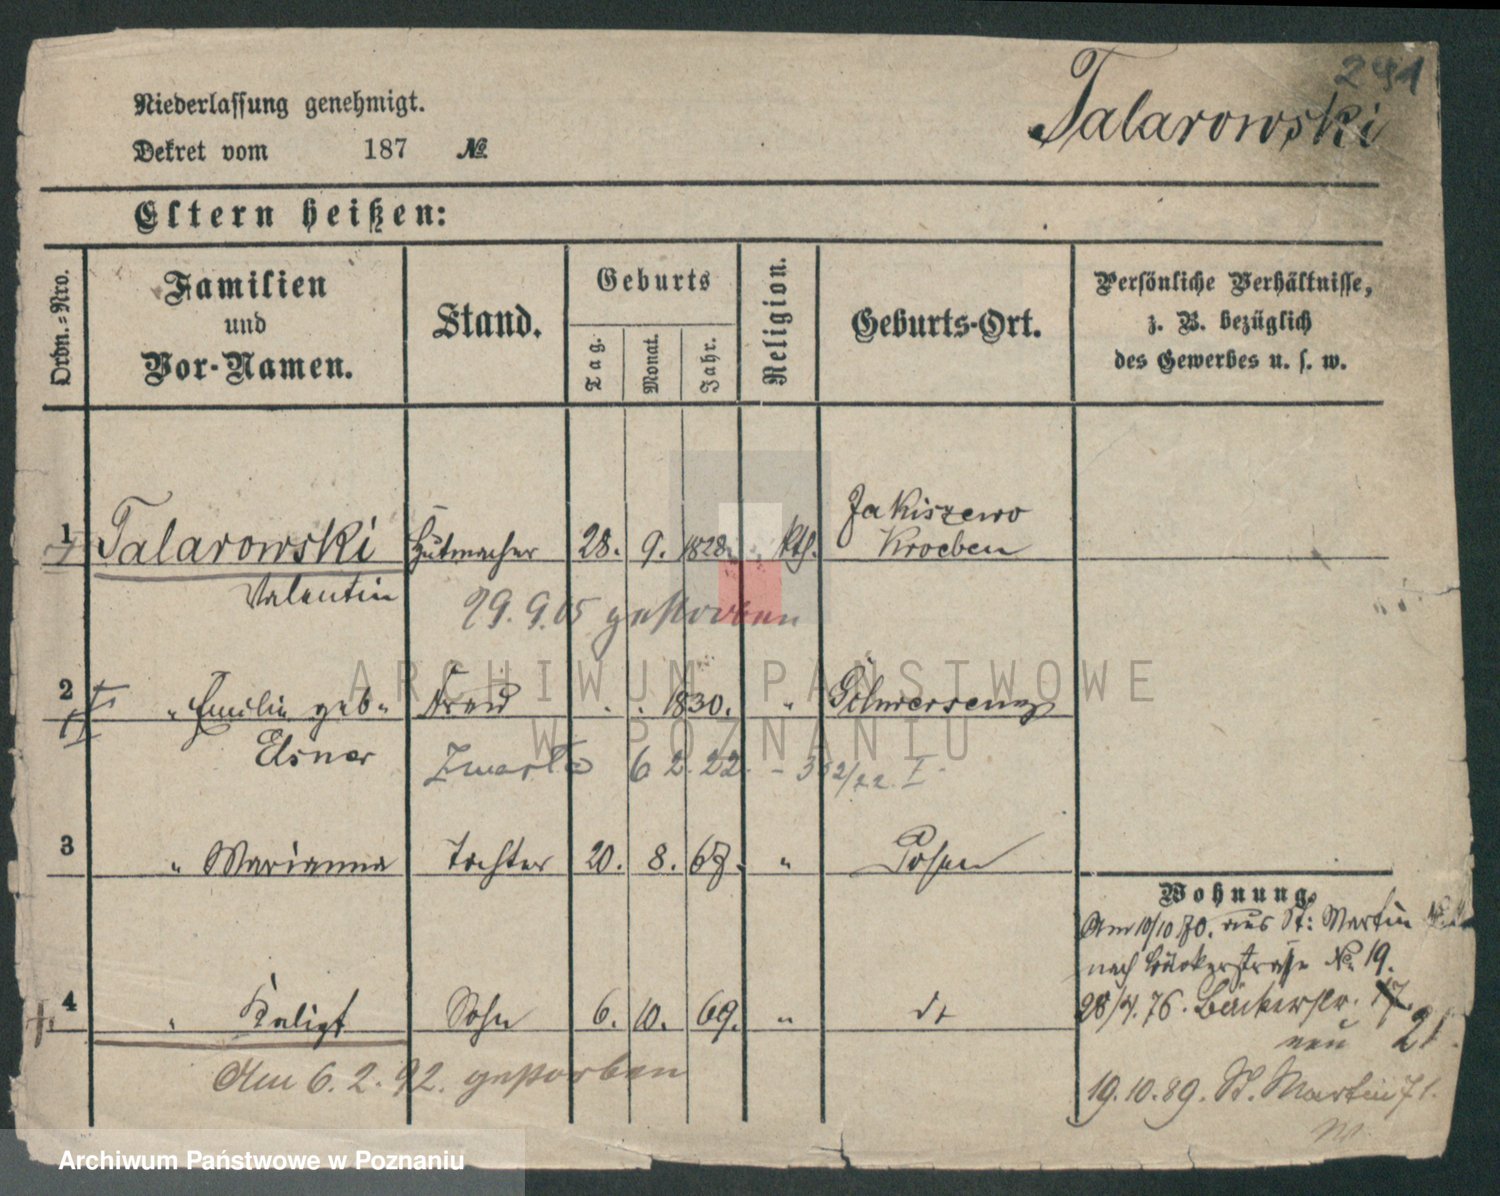 291
Talarowski
Niederlassung genehmigt.
Dekret vom 187 №
Eltern heißen:
Ordn.-Nro.
Familien
und
Vor-Namen.
Stand.
Geburts
Tag.
Monat.
Jahr.
Religion.
Geburts-Ort.
Persönliche Verhältnisse,
z. B. bezüglich
des Gewerbes u. s. w.
Jakiszewo
1 Talarowski Hutmacher 28. 9. 1828. kth. Kroeben
Valentin
29.9.05 gestorben
ARCHIWUM PAŃSTWOWE
W POZNANIU
2 " Emilie geb. Frau 1830. " Schwersenz
Elsner
Zmarła 6 2. 22. - 332/22. I
3 " Marianna Tochter 20. 8. 67. " Posen
4 " Kalixt Sohn 6. 10. 69. " dt
Am 6.2.92. gestorben
Wohnung.
Am 10/10 70. aus St: Martin
nach Bäckerstraße No 19.
28/4. 76. Bäckerstr. 17.
neu 21.
19.10.89. St. Martin 71.
Archiwum Państwowe w Poznaniu